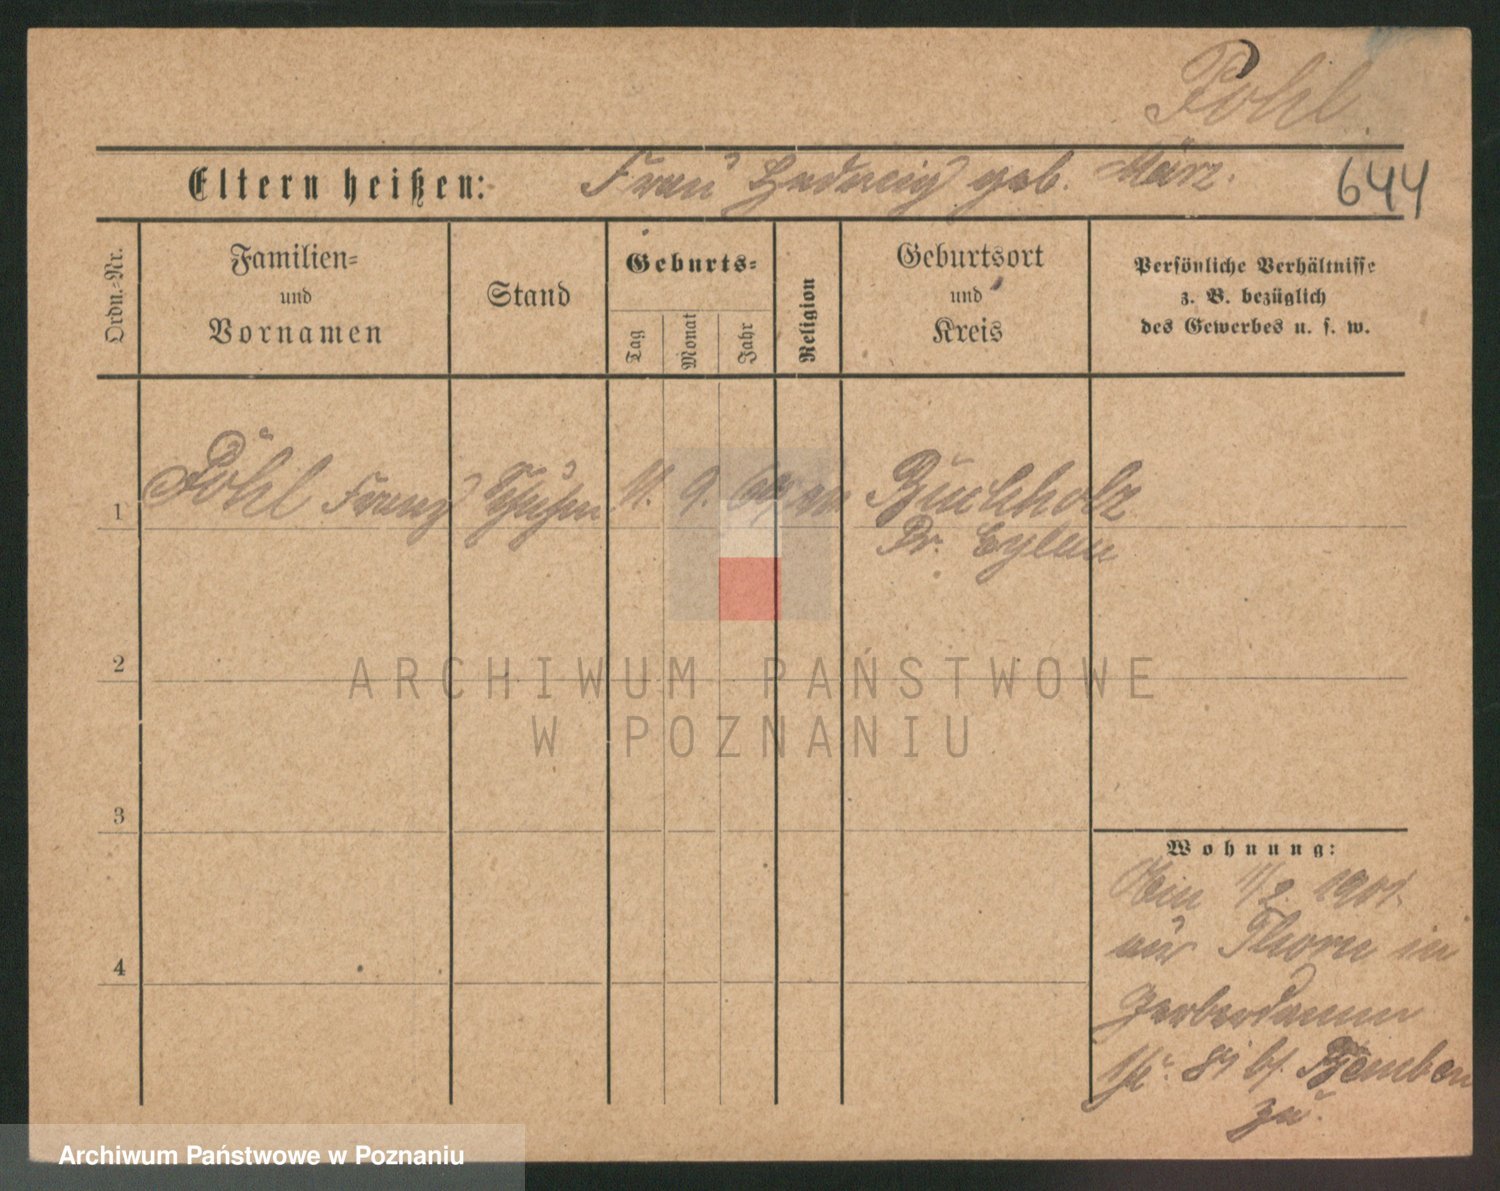 Pohl
Eltern heißen: Frau Hedwig geb. März. 644
Ordn.-Nr.
Familien-
und
Vornamen
Stand
Geburts-
Tag
Monat
Jahr
Religion
Geburtsort
und
Kreis
Persönliche Verhältnisse
z. B. bezüglich
des Gewerbes u. s. w.
1 Pohl Franz 11. 9. Buchholz
Pr. Eylau
2
3
4
Wohnung:
11/2 1901.
aus Thorn in
Gerberdamm
bei
zu.
ARCHIWUM PAŃSTWOWE
W POZNANIU
Archiwum Państwowe w Poznaniu